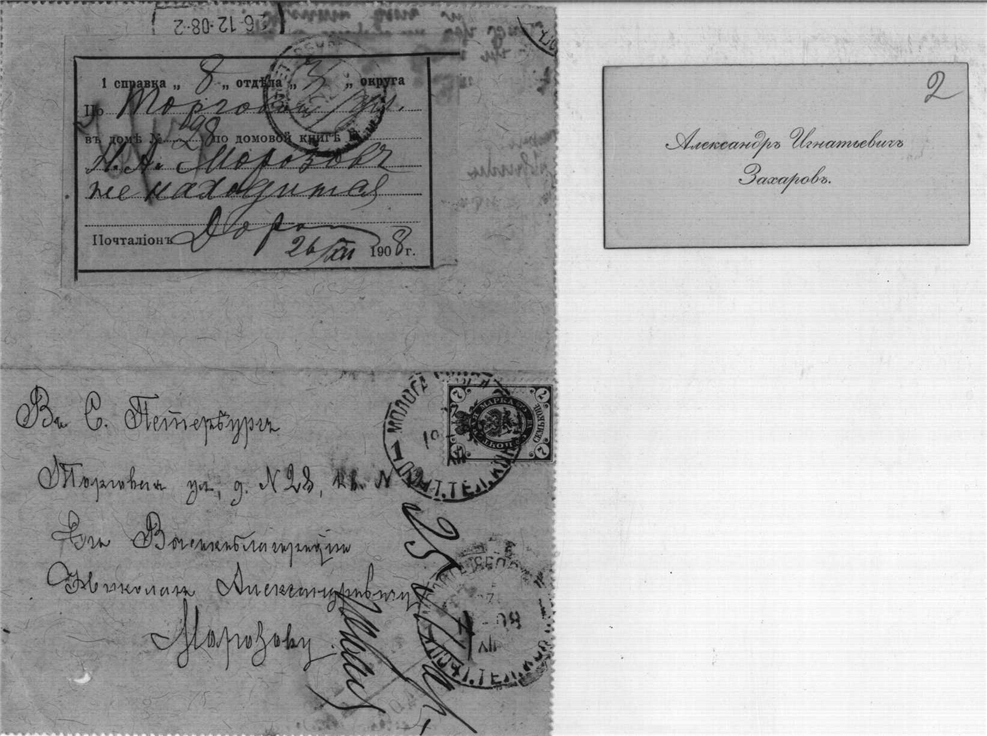 6·12·08·2
1 справка „ 8 „ отдѣла „ 3 „ округа
По Торговой ул.
въ домѣ № 28 по домовой книгѣ
Н. А. Морозовъ
не находится
Почталіонъ
26/XII 1908 г.
Въ С. Петербургъ
Торговая ул, д. N 28, кв. N
Его Высокоблагородію
Николаю Александровичу
Морозову.
МОЛОГА
1
ПОЧТ.ТЕЛ.КОН.
ПОЧТ.ТЕЛ.КОН.
2
Александръ Игнатьевичъ
Захаровъ.